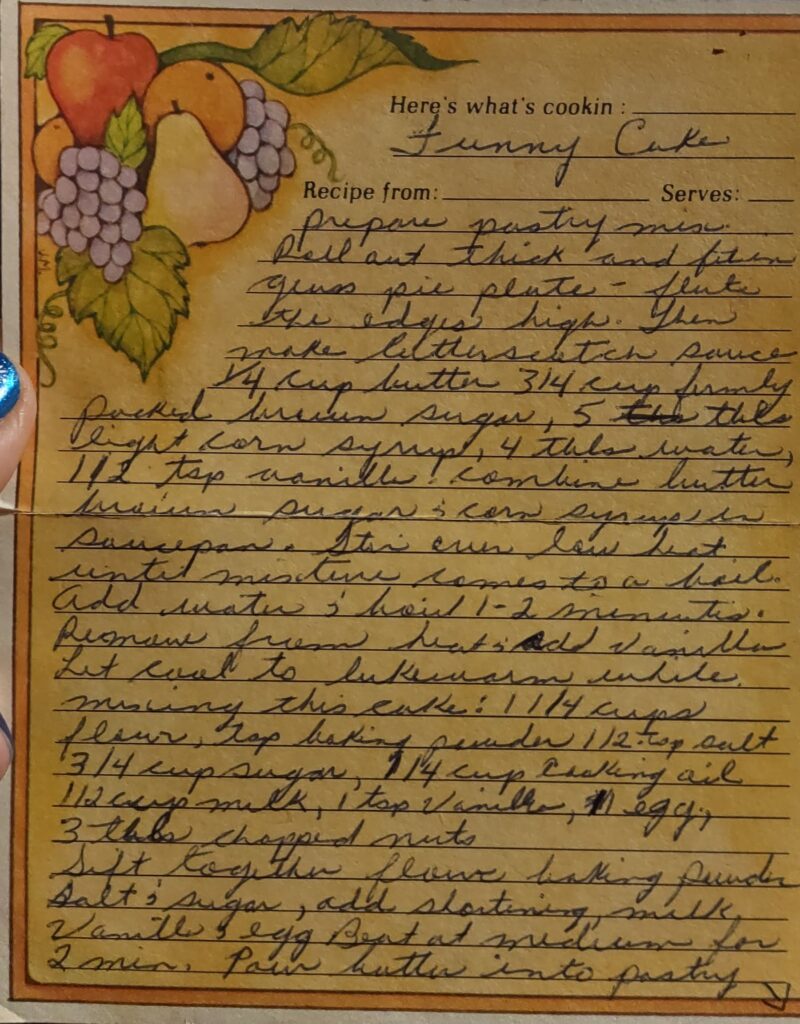 Here's what's cookin :
Funny Cake
Recipe from: Serves:
prepare pastry mix.
Roll out thick and fit in
glass pie plate - flute
the edges high. Then
make butterscotch sauce
1/4 cup butter 3/4 cup firmly
packed brown sugar, 5 tbls
light corn syrup, 4 tbls water,
1/2 tsp vanilla. combine butter
brown sugar & corn syrup in
saucepan. Stir over low heat
until mixture comes to a boil.
Add water & boil 1-2 minutes.
Remove from heat & add vanilla
Let cool to lukewarm while
mixing this cake: 1 1/4 cups
flour, tsp baking powder 1/2 tsp salt
3/4 cup sugar, 1/4 cup cooking oil
1/2 cup milk, 1 tsp vanilla, 1 egg,
3 tbls chopped nuts
Sift together flour baking powder
salt & sugar, add shortening, milk,
vanilla & egg Beat at medium for
2 min. Pour batter into pastry